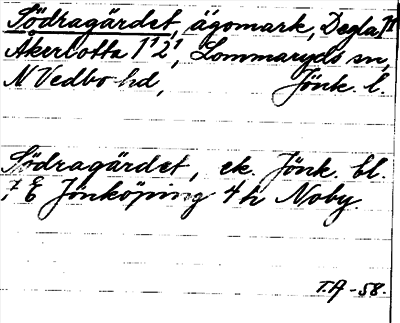 Södragärdet, ägomark, Degla
Åkerlotta 1¹ 2¹, Lommaryds sn,
N Vedbo hd, Jönk. l.
Södragärdet, ek. Jönk. bl.
7 E Jönköping 4 h Noby.
T.A -58.